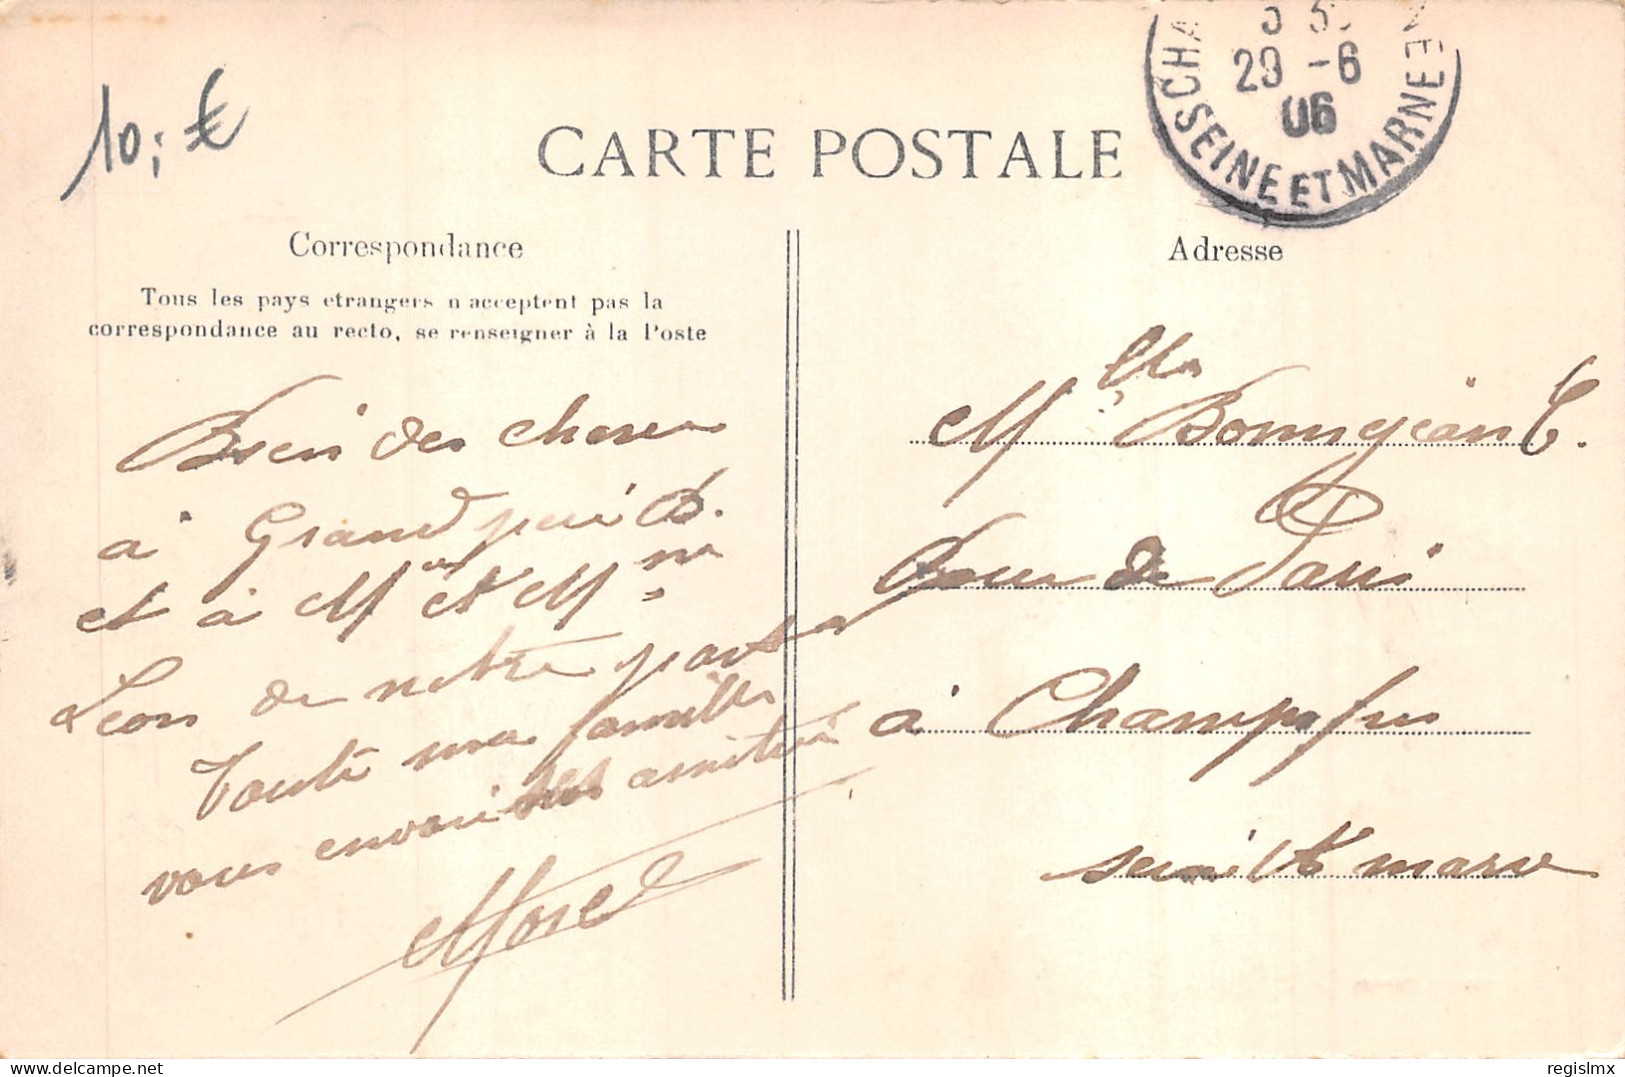 10,- €
CARTE POSTALE
CHA
29 -6
06
SEINE ET MARNE
Correspondance
Tous les pays etrangers n acceptent pas la
correspondance au recto, se renseigner à la Poste
Bien des choses
à Grand père B.
et à Mr et Mme
Léon de notre part
Toute ma famille
vous envoie ses amitiés
Morel
Adresse
Mlle Bonnejean C.
de Paris
à Champ
seine et marne
regislmx